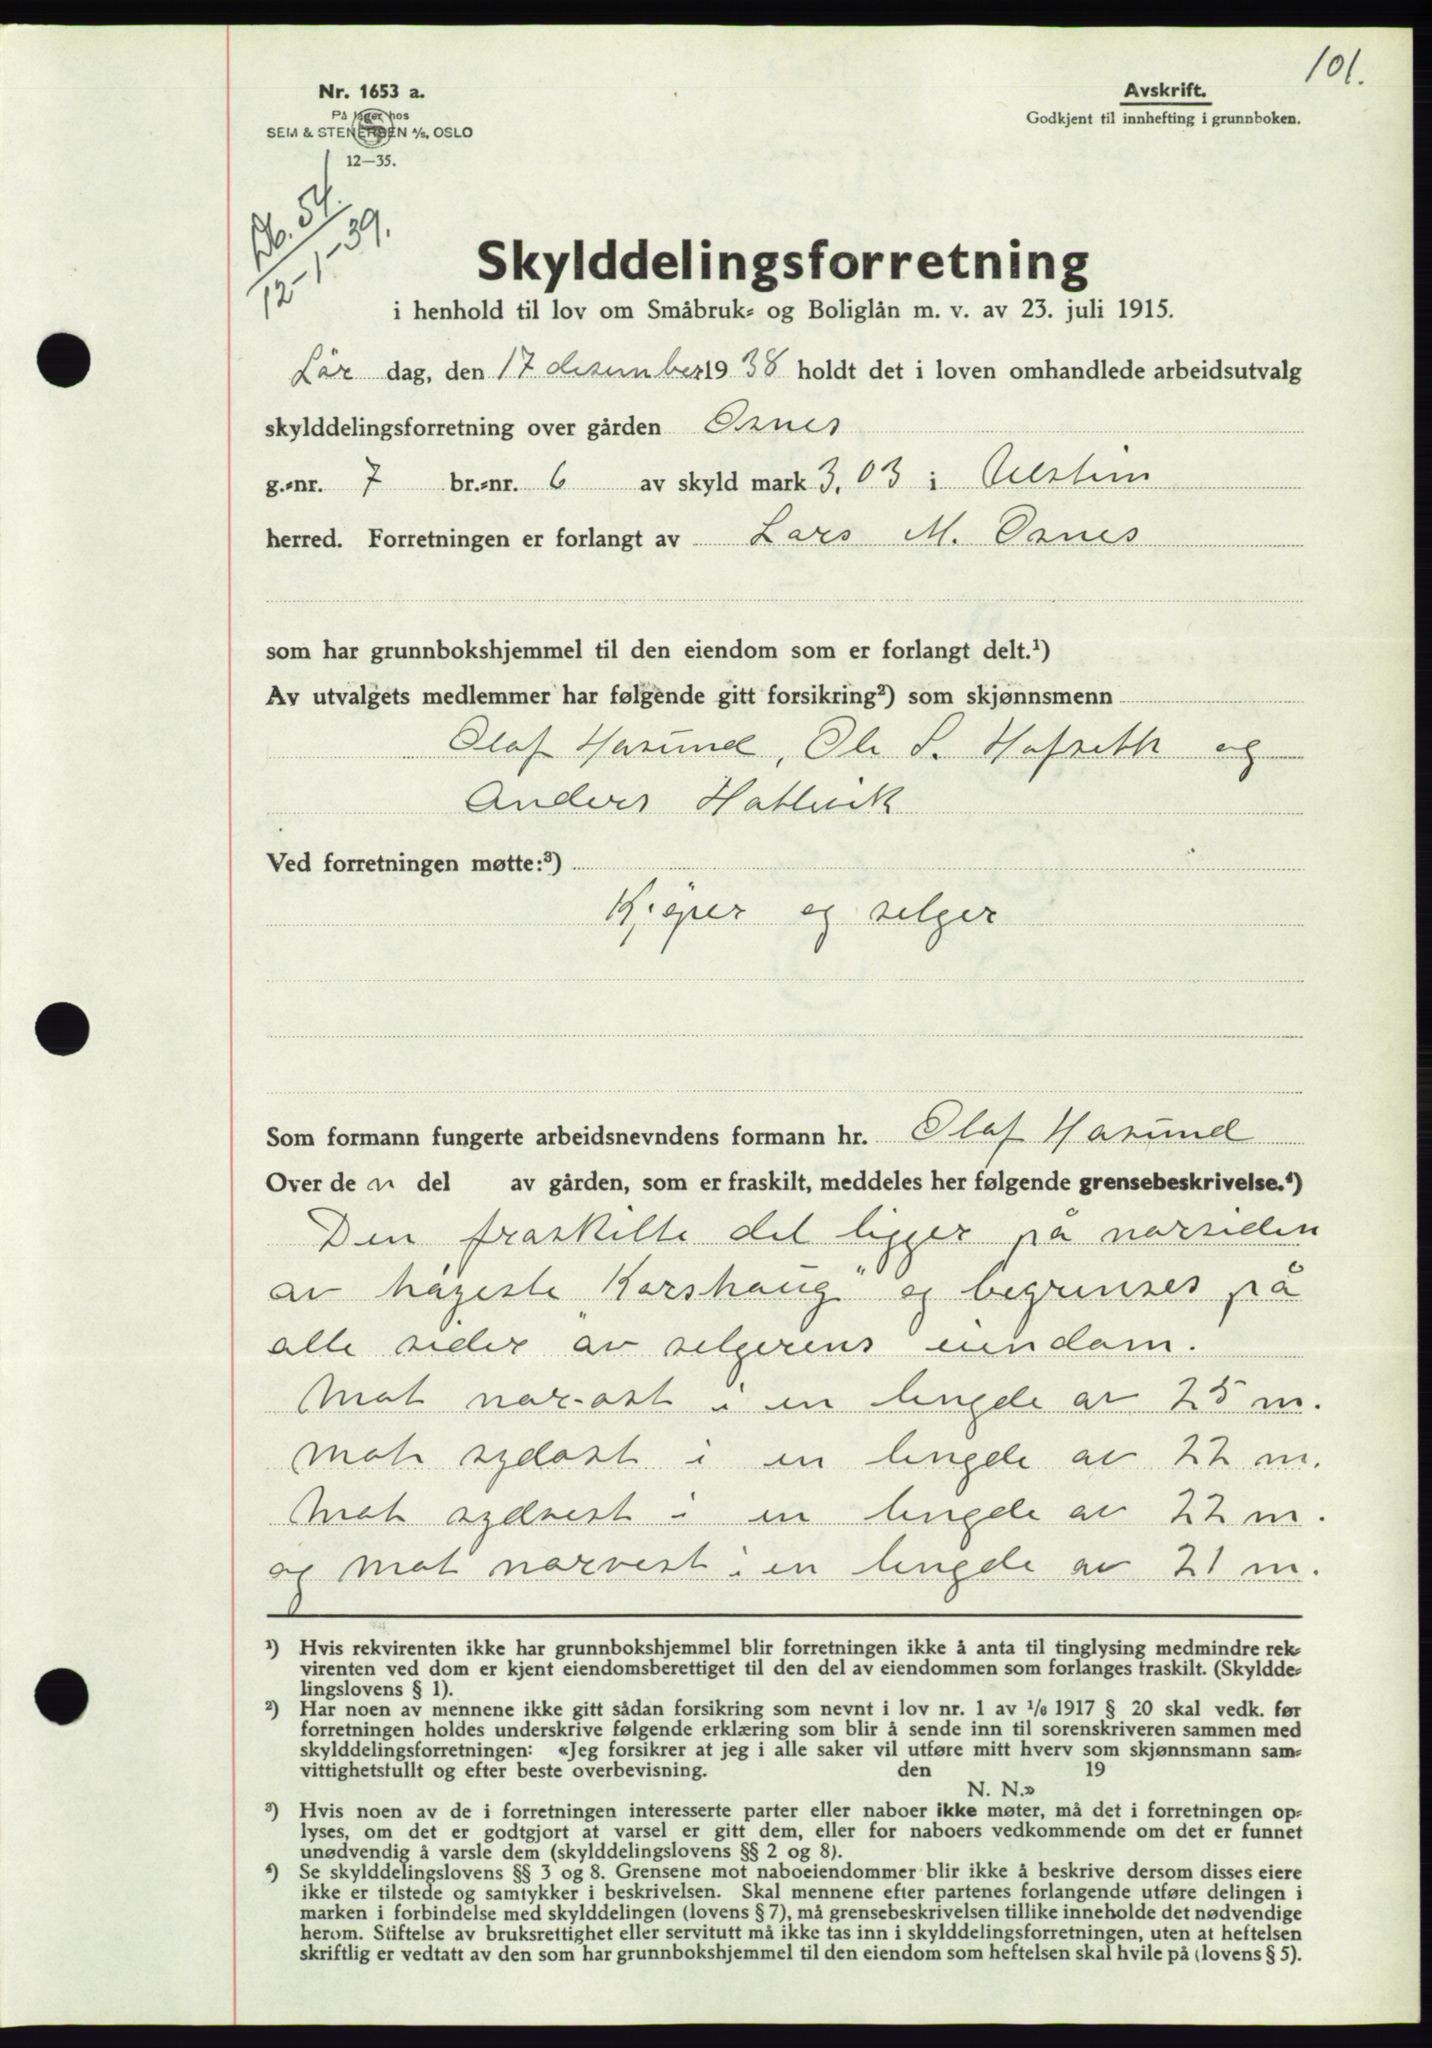 101.
Nr. 1653 a.
På lager hos
SEM & STENERSEN A/S, OSLO
12—35.
Avskrift.
Godkjent til innhefting i grunnboken.
Db. 54.
12-1-39.
Skylddelingsforretning
i henhold til lov om Småbruk- og Boliglån m. v. av 23. juli 1915.
Lör dag, den 17 desember 1938 holdt det i loven omhandlede arbeidsutvalg
skylddelingsforretning over gården Osnes
g.-nr. 7 br.-nr. 6 av skyld mark 3,03 i Ulstein
herred. Forretningen er forlangt av Lars M. Osnes
som har grunnbokshjemmel til den eiendom som er forlangt delt.¹)
Av utvalgets medlemmer har følgende gitt forsikring²) som skjønnsmenn
Olaf Hasund, Ole S. Hofseth og
Anders Hatlevik
Ved forretningen møtte:³)
Kjöper og selger
Som formann fungerte arbeidsnevndens formann hr. Olaf Hasund
Over de n del av gården, som er fraskilt, meddeles her følgende grensebeskrivelse.⁴)
Den fraskilte del ligger på norsiden
av högeste "Korshaug" og begrenses på
alle sider av selgerens eiendom.
Mot nor-ost i en lengde av 25 m.
mot sydost i en lengde av 22 m.
Mot sydvest i en lengde av 22 m.
og mot norvest i en lengde av 21 m.
¹) Hvis rekvirenten ikke har grunnbokshjemmel blir forretningen ikke å anta til tinglysing medmindre rek-
virenten ved dom er kjent eiendomsberettiget til den del av eiendommen som forlanges fraskilt. (Skyldde-
lingslovens § 1).
²) Har noen av mennene ikke gitt sådan forsikring som nevnt i lov nr. 1 av 1/6 1917 § 20 skal vedk. før
forretningen holdes underskrive følgende erklæring som blir å sende inn til sorenskriveren sammen med
skylddelingsforretningen: «Jeg forsikrer at jeg i alle saker vil utføre mitt hverv som skjønnsmann sam-
vittighetsfullt og efter beste overbevisning. den 19
N. N.»
³) Hvis noen av de i forretningen interesserte parter eller naboer ikke møter, må det i forretningen op-
lyses, om det er godtgjort at varsel er gitt dem, eller for naboers vedkommende om det er funnet
unødvendig å varsle dem (skylddelingslovens §§ 2 og 8).
⁴) Se skylddelingslovens §§ 3 og 8. Grensene mot naboeiendommer blir ikke å beskrive dersom disses eiere
ikke er tilstede og samtykker i beskrivelsen. Skal mennene efter partenes forlangende utføre delingen i
marken i forbindelse med skylddelingen (lovens § 7), må grensebeskrivelsen tillike inneholde det nødvendige
herom. Stiftelse av bruksrettighet eller servitutt må ikke tas inn i skylddelingsforretningen, uten at heftelsen
skriftlig er vedtatt av den som har grunnbokshjemmel til den eiendom som heftelsen skal hvile på (lovens § 5).